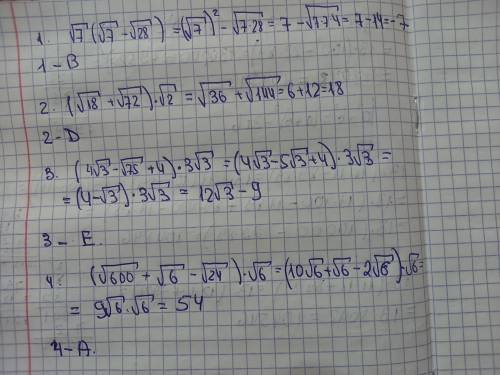 1. √7 (√7 - √28) = (√7)² - √7·28 = 7 - √7·7·4 = 7-14=-7
1-B
2. (√18 + √72)·√2 = √36 + √144 = 6+12=18
2-D
3. (4√3 - √75 + 4)·3√3 = (4√3-5√3+4)·3√3 =
= (4-√3)·3√3 = 12√3 - 9
3 - E.
4. (√600 + √6 - √24)·√6 = (10√6+√6-2√6)·√6=
= 9√6·√6 = 54
4-A.